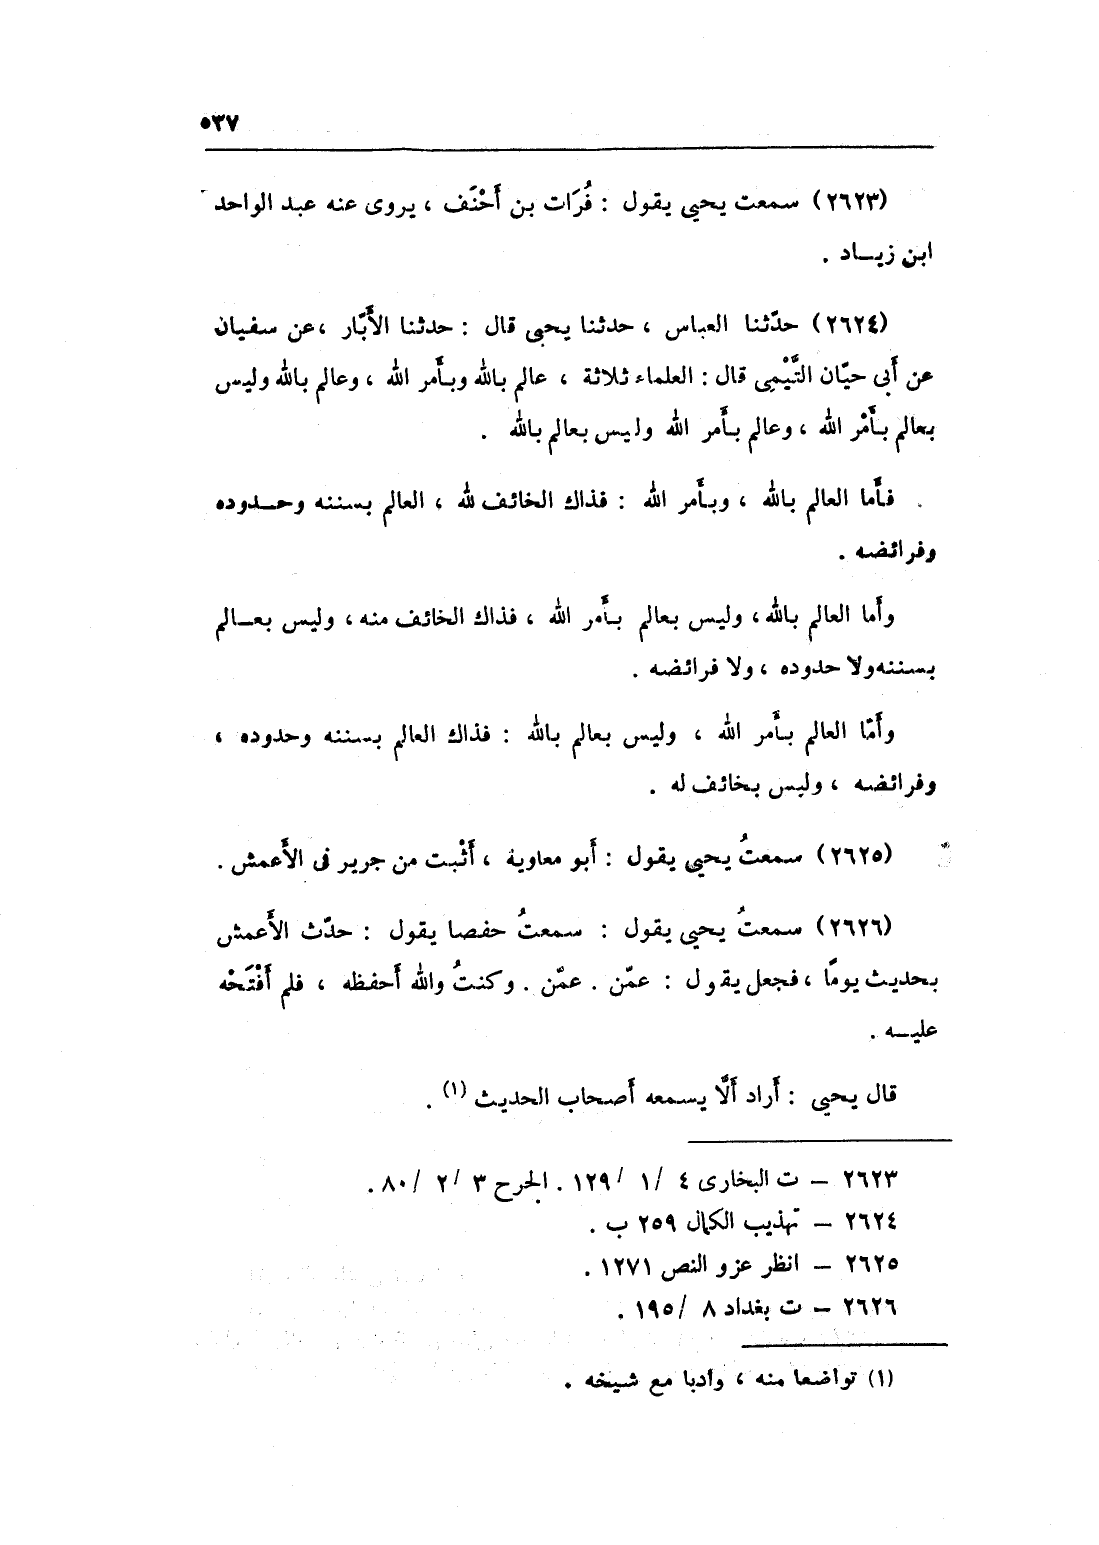 ٥٣٧
(٢٦٢٣) سمعت يحيى يقول : فُرَات بن أَحْنَف ، يروى عنه عبد الواحد
ابن زيـاد .
(٢٦٢٤) حدّثنا العباس ، حدثنا يحيى قال : حدثنا الأَبَّار ، عن سفيان
عن أَبى حيّان التَّيْمِى قال : العلماء ثلاثة ، عالم بالله وبأَمر الله ، وعالم بالله وليس
بعالم بأَمْر الله ، وعالم بأَمر الله وليس بعالم بالله .
فأَما العالم بالله ، وبأَمر الله : فذاك الخائف لله ، العالم بسننه وحـدوده
وفرائضه .
وأَما العالم بالله ، وليس بعالم بأَمر الله ، فذاك الخائف منه ، وليس بعـالم
بسننه ولا حدوده ، ولا فرائضه .
وأَمّا العالم بأَمر الله ، وليس بعالم بالله : فذاك العالم بسننه وحدوده ،
وفرائضه ، وليس بخائف له .
(٢٦٢٥) سمعتُ يحيى يقول : أَبو معاوية ، أَثْبت من جرير فى الأَعمش .
(٢٦٢٦) سمعتُ يحيى يقول : سمعتُ حفصا يقول : حدّث الأَعمش
بحديث يومًا ، فجعل يقول : عمّن . عمّن . وكنتُ والله أَحفظه ، فلم أَفْتَحْه
عليـه .
قال يحيى : أَراد أَلَّا يسمعه أَصحاب الحديث (١) .
٢٦٢٣ – ت البخارى ٤ / ١ / ١٢٩ . الجرح ٣ / ٢ / ٨٠ .
٢٦٢٤ – تهذيب الكمال ٢٥٩ ب .
٢٦٢٥ – انظر عزو النص ١٢٧١ .
٢٦٢٦ – ت بغداد ٨ / ١٩٥ .
(١) تواضعا منه ، وأدبا مع شيخه .